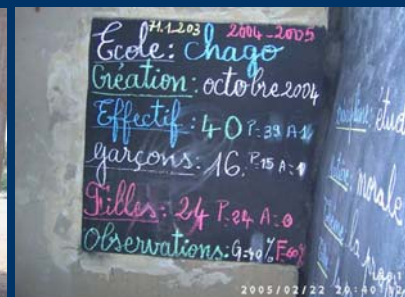 71.1.203 2004-2005
Ecole: Chago
Création: octobre 2004
Effectif: 40 P: 39 A: 1
garçons: 16. P: 15 A: 1
Filles: 24 P: 24 A: 0
Observations: G: 40% F: 60%
étud
morale
la
2005/02/22 20:40